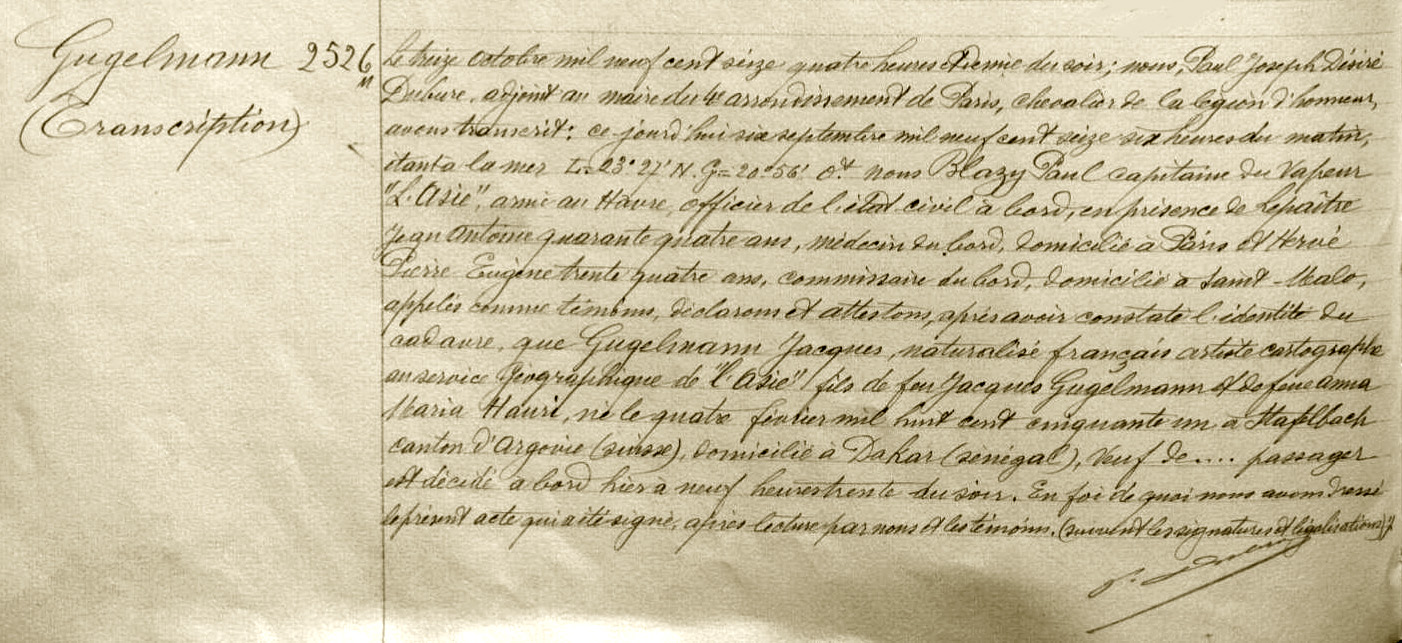 Gugelmann 2526
(Transcription)
Le treize octobre mil neuf cent seize quatre heures et demie du soir; nous, Paul Joseph Désiré
Dubure, adjoint au maire du 4e arrondissement de Paris, chevalier de la légion d'honneur,
avons transcrit: ce-jourd'hui six septembre mil neuf cent seize six heures du matin,
étant à la mer L=23°27' N. G=20°56' Ot nous Blazy Paul capitaine du Vapeur
"L'Asie", armé au Hâvre, officier de l'état civil à bord, en présence de Lepaître
Jean Antoine quarante quatre ans, médecin du bord, domicilié à Paris et Hervé
Pierre Eugène trente quatre ans, commissaire du bord, domicilié à Saint-Malo,
appelés comme témoins, déclarons et attestons, après avoir constaté l'identité du
cadavre, que Gugelmann Jacques, naturalisé français artiste cartographe
au service géographique de "l'Asie" fils de feu Jacques Gugelmann et de feue Anna
Maria Hauri, né le quatre février mil huit cent cinquante un à Stafelbach
canton d'Argovie (Suisse), domicilié à Dakar (Sénégal), Veuf de .... passager
est décédé à bord hier à neuf heures trente du soir. En foi de quoi nous avons dressé
le présent acte qui a été signé, après lecture par nous et les témoins. (suivent les signatures et légalisations)